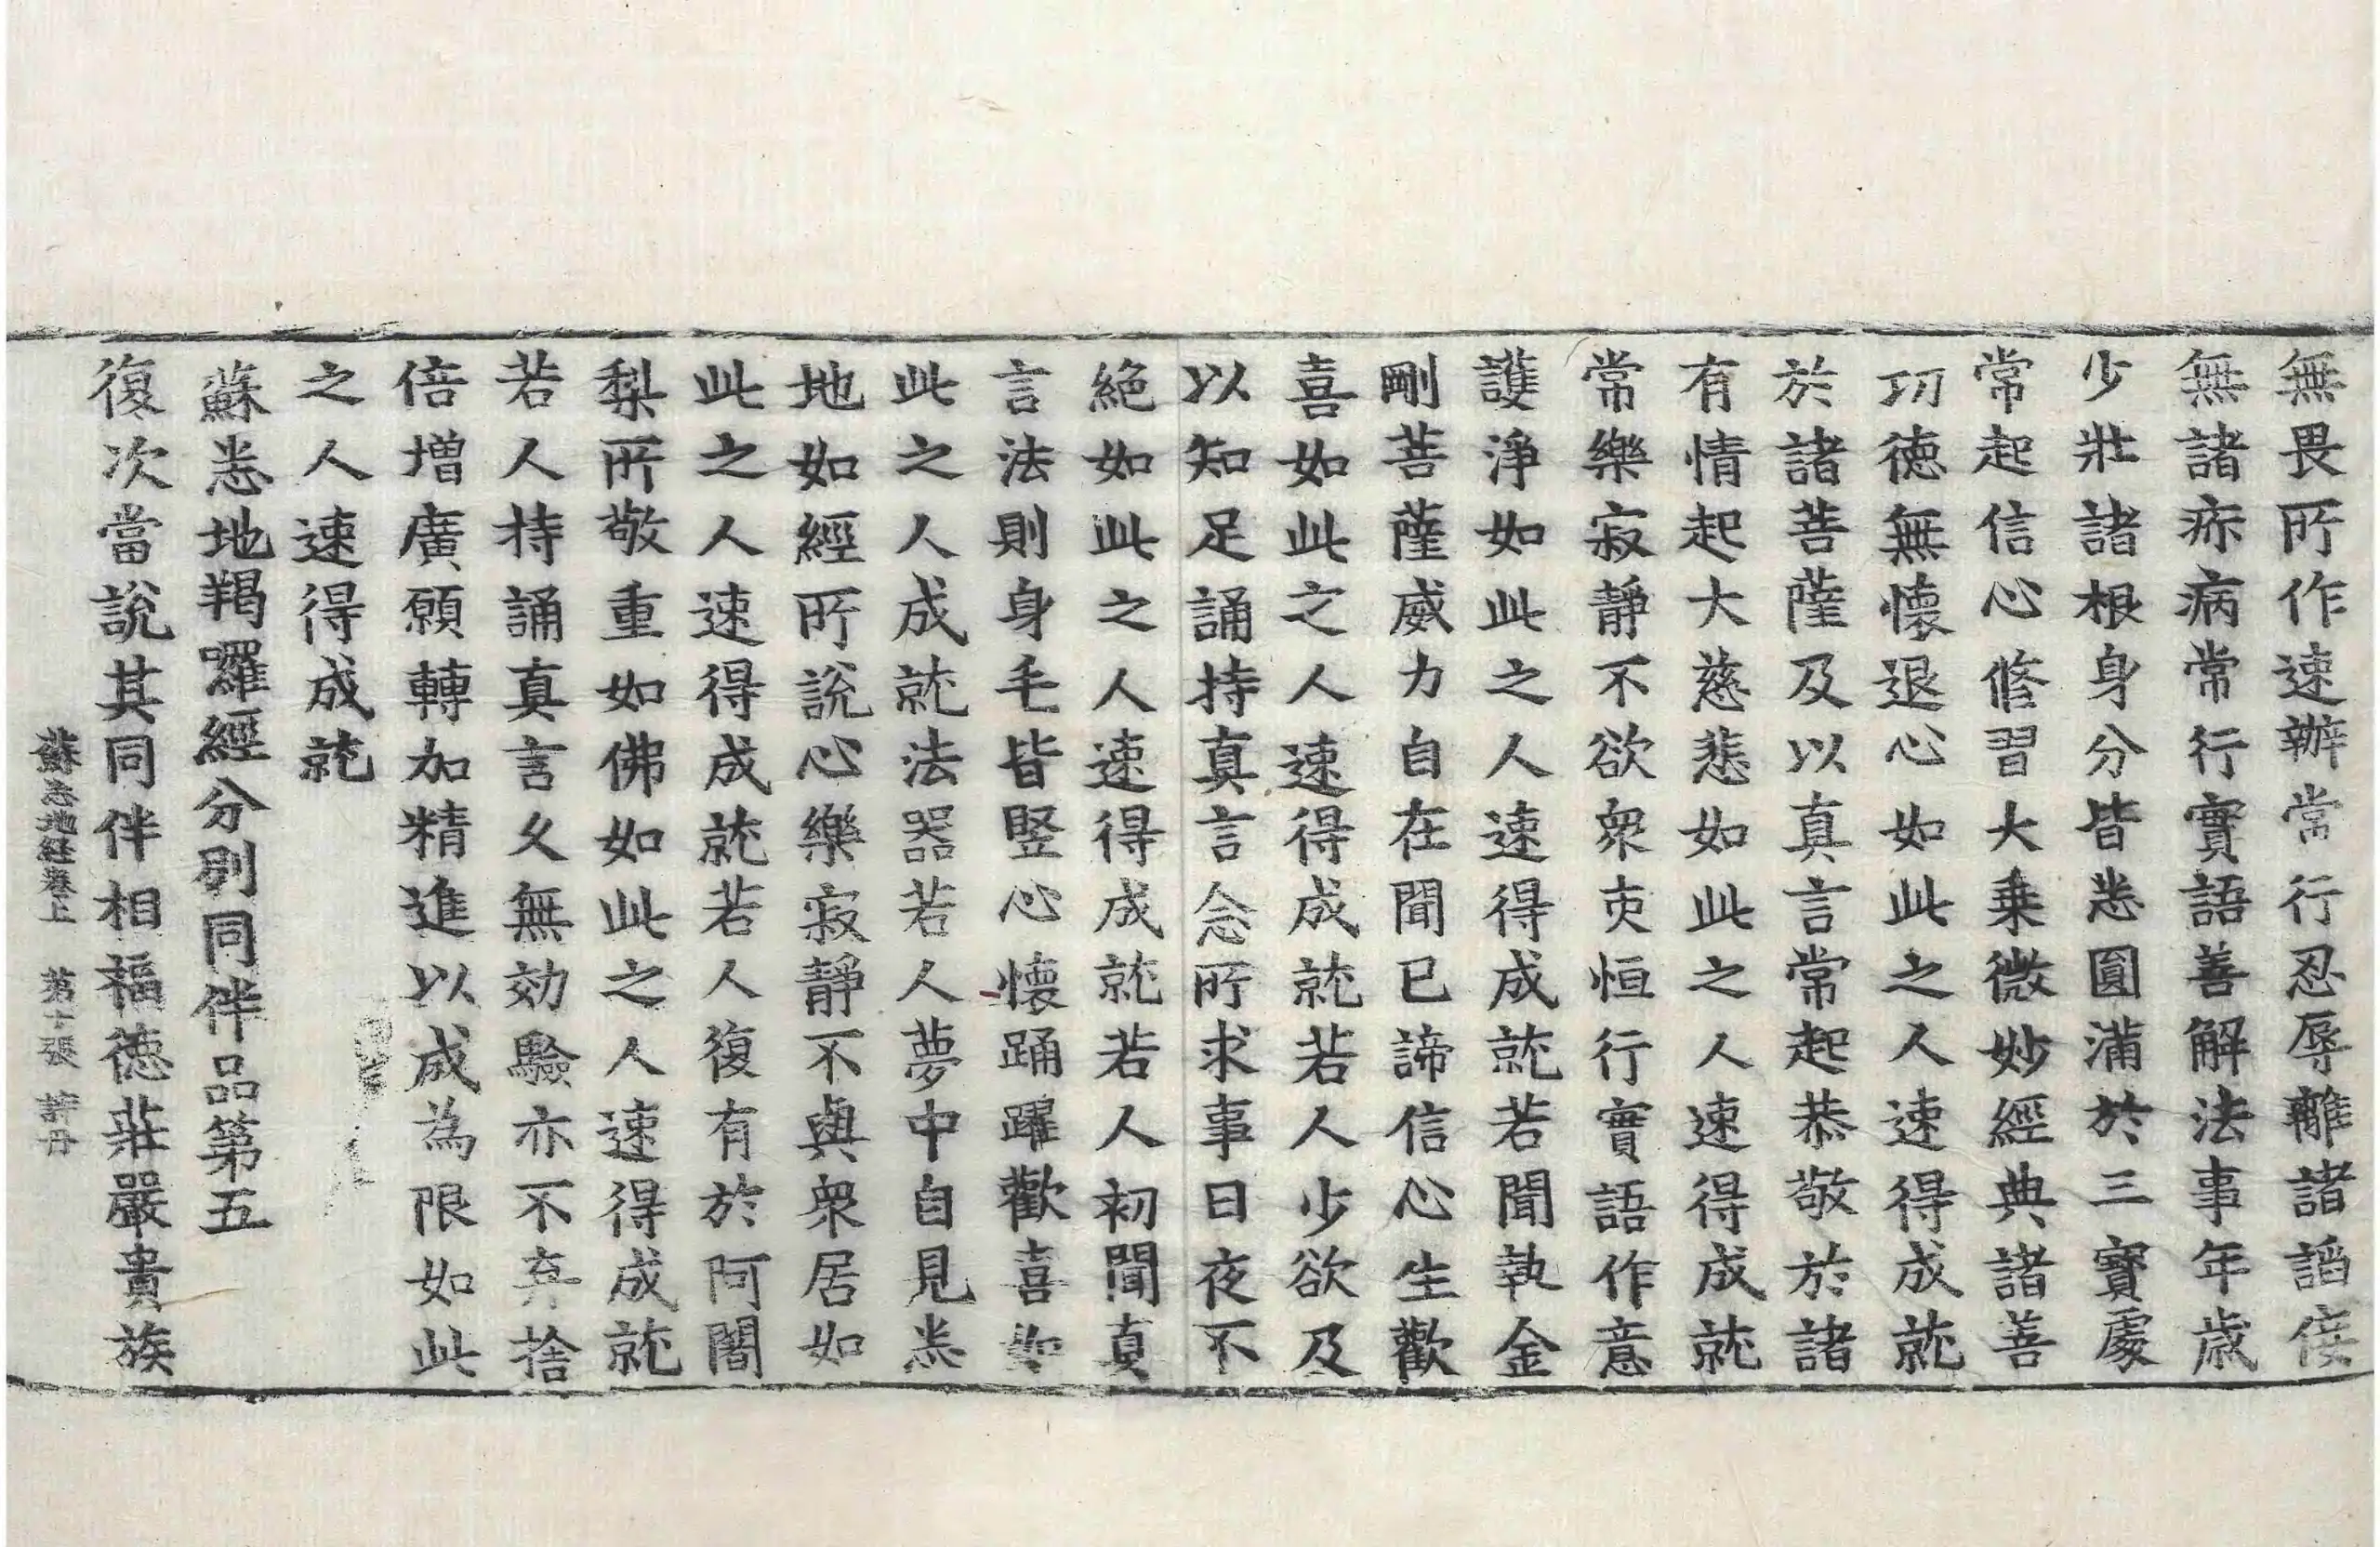 無畏所作速辦常行忍辱離諸諂佞
無諸疹病常行實語善解法事年歲
少壯諸根身分皆悉圓滿於三寶處
常起信心修習大乗微妙經典諸善
功德無懷退心如此之人速得成就
於諸菩薩及以真言常起恭敬於諸
有情起大慈悲如此之人速得成就
常樂寂静不欲衆䆒恒行實語作意
護淨如此之人速得成就若聞執金
剛菩薩威力自在聞已諦信心生歡
喜如此之人速得成就若人少欲及
以知足誦持真言念所求事日夜不
絶如此之人速得成就若人初聞真
言法則身毛皆竪心懷踊躍歡喜如
此之人成就法器若人夢中自見悉
地如經所說心樂寂靜不與衆居如
此之人速得成就若人復有於阿闍
梨所敬重如佛如此之人速得成就
若人持誦真言久無効驗亦不弃捨
倍增廣願轉加精進以成為限如此
之人速得成就
蘇悉地羯囉經分別同伴品第五
復次當說其同伴相福徳莊嚴貴族
蘇悉地經卷上 第十張 詩丹